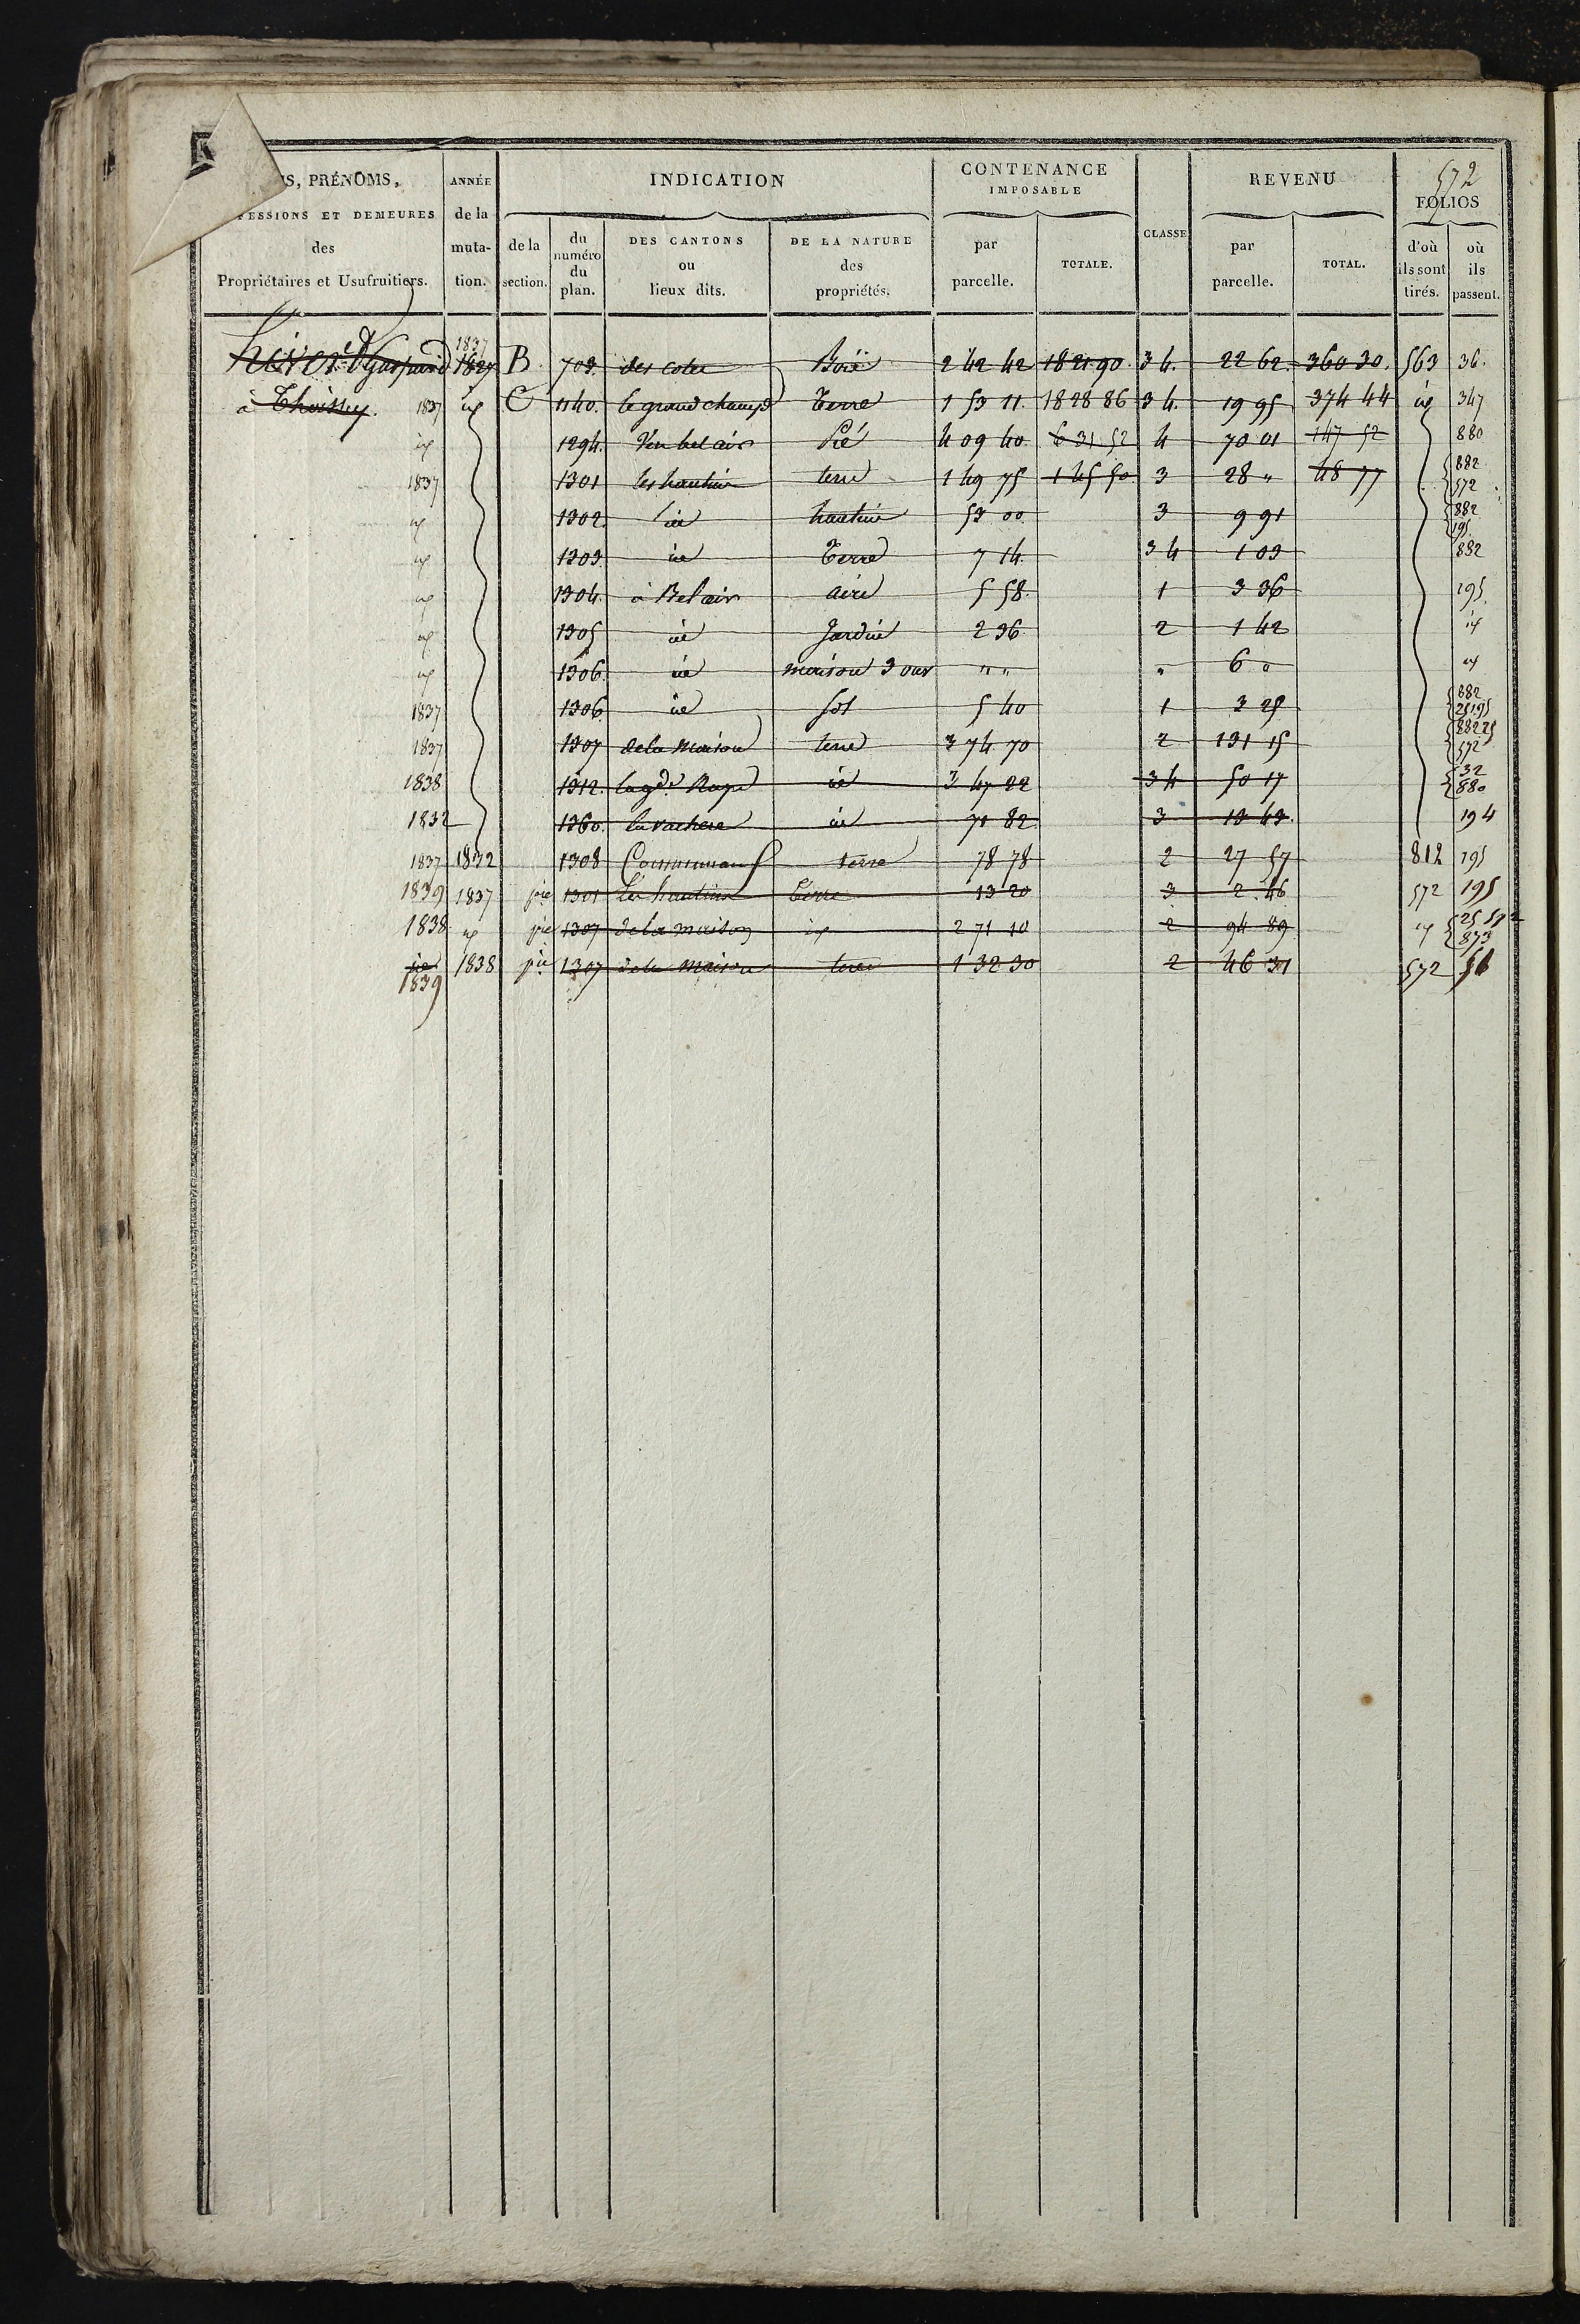 572
S, PRÉNOMS,
ESSIONS ET DEMEURES
des
Propriétaires et Usufruitiers.
ANNÉE
de la
muta-
tion.
INDICATION
de la
section.
du
numéro
du
plan.
DES CANTONS
ou
lieux dits.
DE LA NATURE
des
propriétés.
CONTENANCE
IMPOSABLE
par
parcelle.
TOTALE.
CLASSE
REVENU
par
parcelle.
TOTAL.
FOLIOS
d'où
ils sont
tirés.
où
ils
passent.
1837
1827 B 703. des cotes Bois 2 42 42 1821 90. 3 4. 22 62. 360 30. 563 36.
à Thoissey. 1837 id C 1140. le grand champ Terre 1 53 11. 1828 86 3 4. 19 95 374 44 id 347
id 1294. Pré 4 09 40. 6 31 52 4 70 01 147 52 880
1837 1301 les hautins terre 1 49 75 1 45 50 3 28 " 48 77 882 572
id 1302. id hautins 53 00. 3 9 91 882 195.
id 1303. id Terre 7 14. 3 4 1 03 882
id 1304. à Bel air aire 5 58. 1 3 36 195.
id 1305 id Jardin 2 36. 2 1 42 id
id 1306. id maison 3 ouv " " " 6 " id
1837 1306 id sol 5 40 1 3 25 882 25 195
1837 1307 de la Maison terre 3 74 70 2 131 15 882 25 572
1838 1312. la gde Raye id 3 47 22 3 4 50 17 32 880
1832 1360. la vachere id 71 82. 3 13 43. 194
1837 1832 1308 Communau terre 78 78 2 27 57 812 195
1839 1837 pie 1301 Les hautins Terre 13 20 3 2. 46 572 195
1838 id pie 1307 de la maison id 2 71 10 2 94 89 id 25 592 873
id 1838 pie 1307 de la Maison terre 1 32 30 2 46 31 572 56
1839